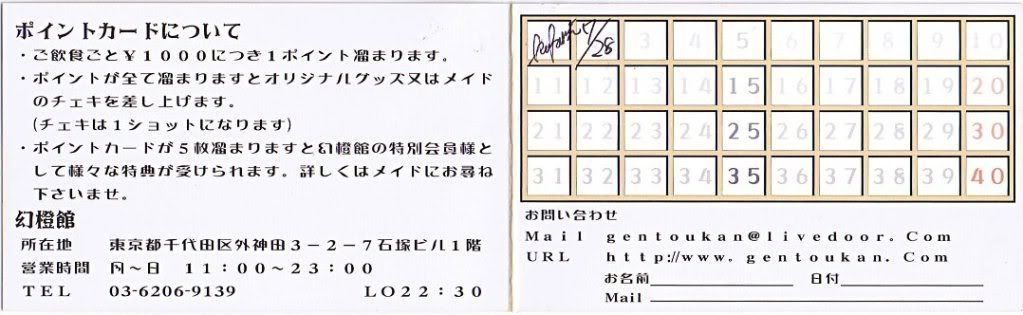 ポイントカードについて
・ご飲食ごと￥１０００につき１ポイント溜まります。
・ポイントが全て溜まりますとオリジナルグッズ又はメイド
のチェキを差し上げます。
(チェキは１ショットになります)
・ポイントカードが５枚溜まりますと幻橙館の特別会員様と
して様々な特典が受けられます。詳しくはメイドにお尋ね
下さいませ。
幻橙館
所在地　東京都千代田区外神田３－２－７石塚ビル１階
営業時間　月～日　１１：００～２３：００
ＴＥＬ　03-6206-9139　ＬＯ２２：３０
3 4 5 6 7 8 9 10
11 12 13 14 15 16 17 18 19 20
21 22 23 24 25 26 27 28 29 30
31 32 33 34 35 36 37 38 39 40
お問い合わせ
Ｍａｉｌ　ｇｅｎｔｏｕｋａｎ＠ｌｉｖｅｄｏｏｒ．Ｃｏｍ
ＵＲＬ　ｈｔｔｐ://ｗｗｗ．ｇｅｎｔｏｕｋａｎ．Ｃｏｍ
お名前　日付
Mail